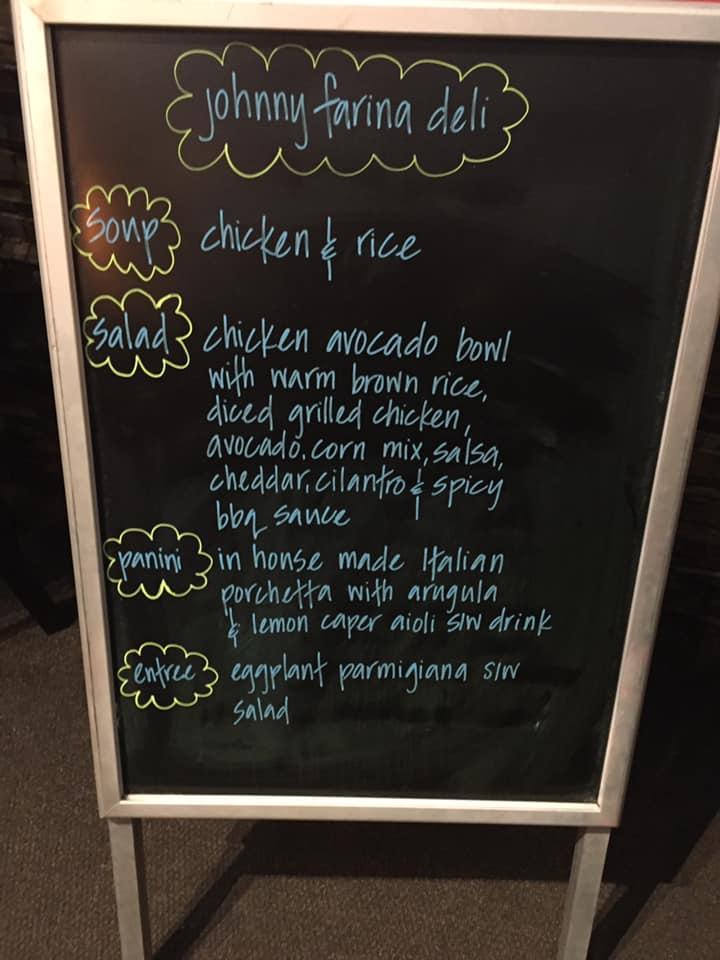 johnny farina deli
soup chicken & rice
salad chicken avocado bowl
with warm brown rice,
diced grilled chicken,
avocado, corn mix, salsa,
cheddar, cilantro & spicy
bbq sauce
panini in house made Italian
porchetta with arugula
& lemon caper aioli s/w drink
entree eggplant parmigiana s/w
salad